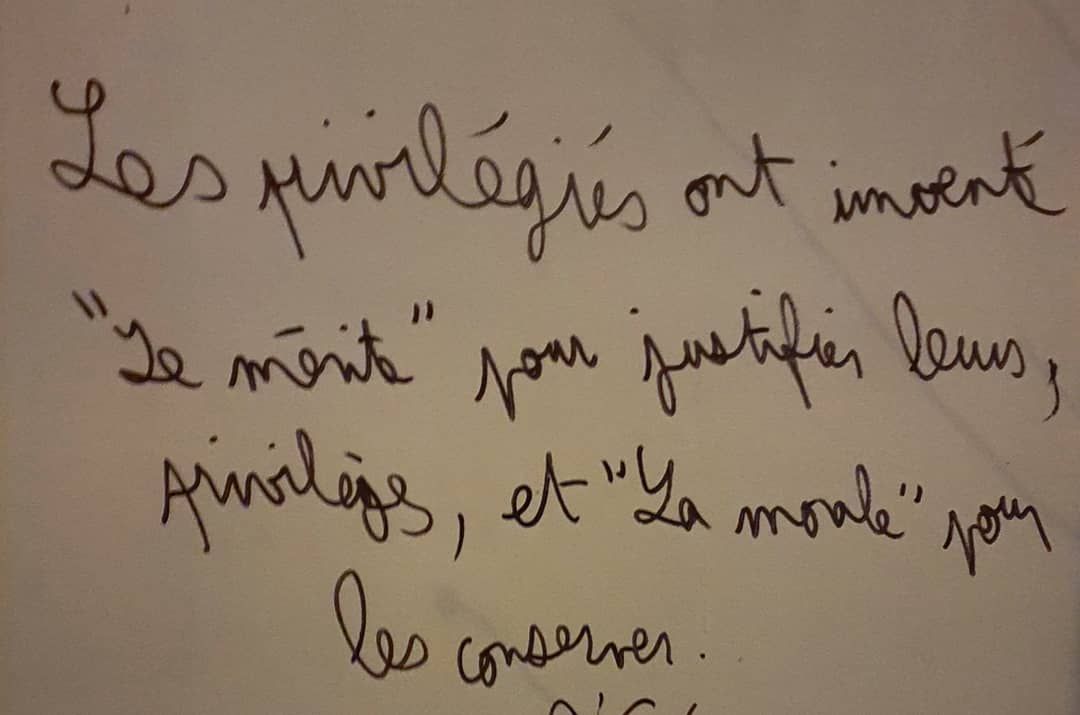 Les privilégiés ont inventé
"Le mérite" pour justifier leurs,
privilèges, et "La morale" pour
les conserver.